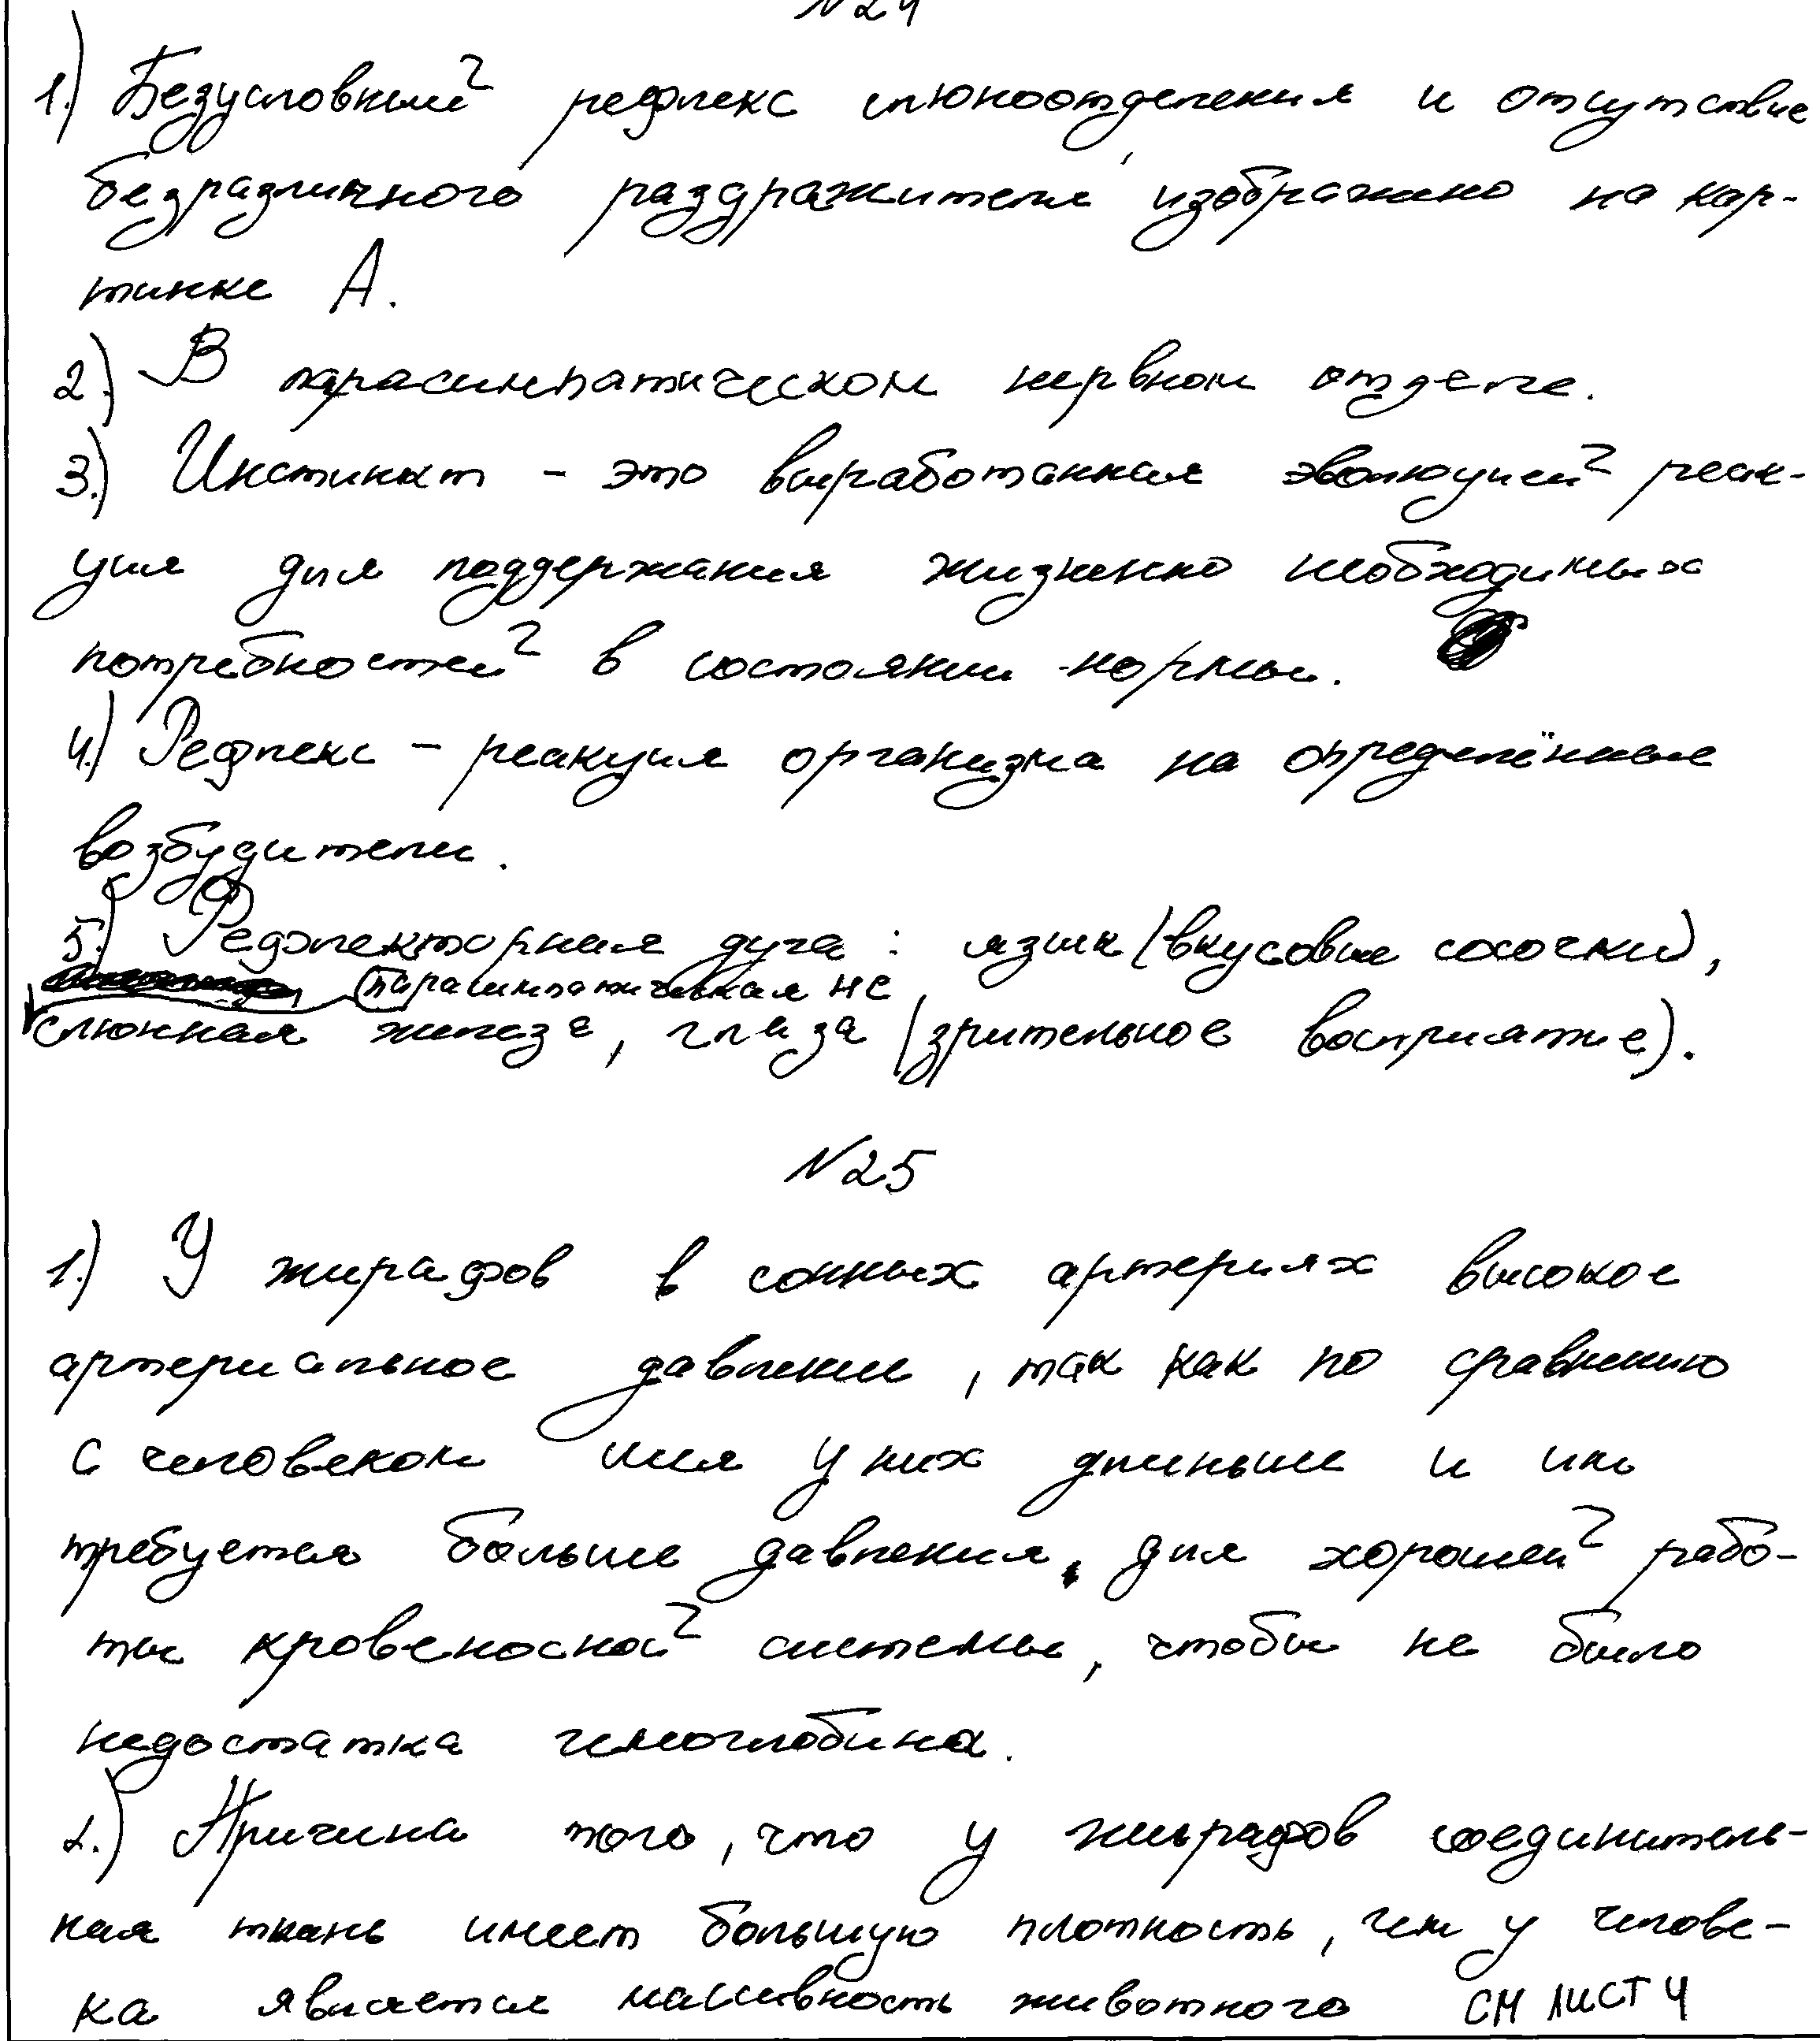 №24
1.) Безусловный рефлекс слюноотделения и отсутствие
безразличного раздражителя изображено на кар-
тинке А.
2.) В парасимпатическом нервном отделе.
3.) Инстинкт - это выработанная эволюцией реак-
ция для поддержания жизненно необходимых
потребностей в состоянии нормы.
4.) Рефлекс - реакция организма на определённые
возбудители.
5.) Рефлекторная дуга: язык (вкусовые сосочки),
парасимпатическая НС,
слюнная железа, глаза (зрительное восприятие).
№25
1.) У жирафов в сонных артериях высокое
артериальное давление, так как по сравнению
с человеком шея у них длиньше и им
требуется больше давления, для хорошей рабо-
ты кровеносной системы, чтобы не было
недостатка гемоглобина.
2.) Причина того, что у жирафов соединитель-
ная ткань имеет большую плотность, чем у челове-
ка является массивность животного СМ ЛИСТ 4